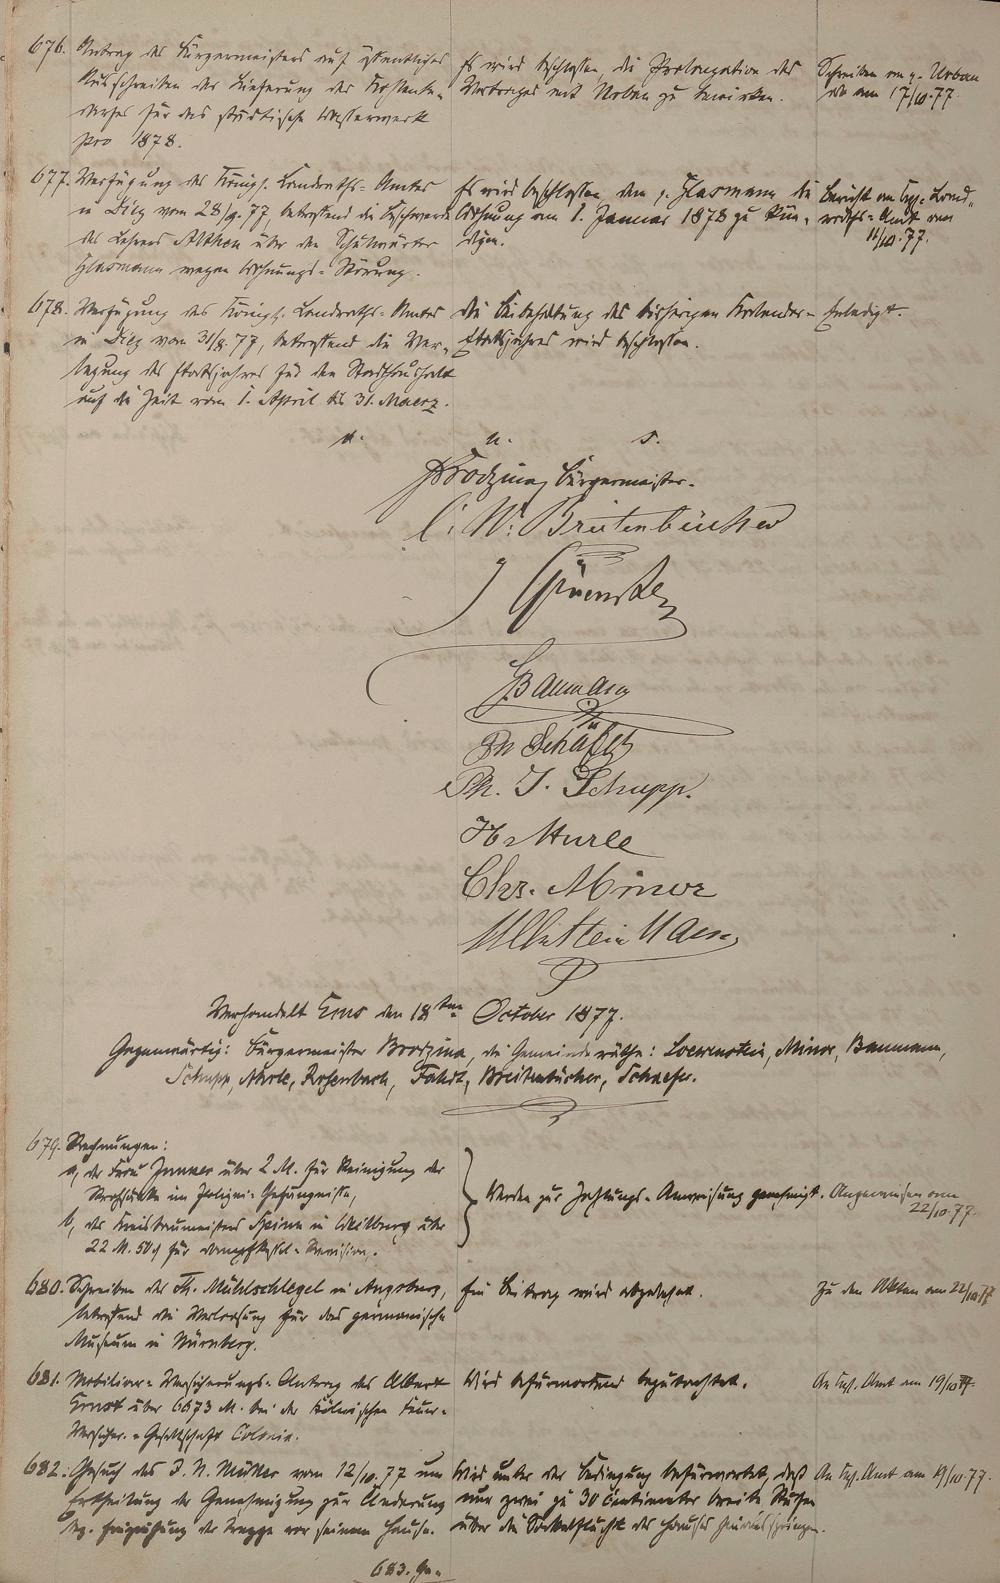 676. Antrag des Bürgermeisters auf öffentliches
Ausschreiben der Lieferung der
für das städtische Wasserwerk
pro 1878.
Es wird beschlossen, die Prolongation des
Vertrages mit Urban zu bewirken.
Schreiben an p. Urban
am 17/10.77.
677. Verfügung des Königl. Landraths-Amtes
in Diez vom 28/9.77, betreffend die Beschwerde
des Lehrers Althen über den Schulwärter
Glasmann wegen Wohnungs-Störung.
Es wird beschlossen dem p. Glasmann die
Wohnung am 1. Januar 1878 zu kün-
digen.
Bericht an Kgl. Land-
raths-Amt am
11/10.77.
678. Verfügung des Königl. Landraths-Amtes
in Diez vom 31/8.77, betreffend die Ver-
legung des Etatsjahres für den Stadthaushalt
auf die Zeit vom 1. April bis 31. Maerz.
Die Beibehaltung des bisherigen Kalender-
Etatsjahres wird beschlossen.
Erledigt.
v. u. s.
Brodzina, Bürgermeister.
C. W. Breitenbücher
Baumann
Ph Schäfer
Ph. J. Schupp.
H. Nurle
Chr. Minor
Verhandelt Ems den 18ten October 1877.
Gegenwärtig: Bürgermeister Brodzina, die Gemeinderäthe: Loewenstein, Minor, Baumann,
Schupp, Nurle, Rosenbach, Fahdt, Breitenbücher, Schaefer.
679. Rechnungen:
a, der Frau Junker über 2 M. für Reinigung der
Strohsäcke im Polizei-Gefängnisse,
b, des Kreisbaumeisters Spinn in Weilburg über
22 M. 50 ₰ für Dampfkessel-Revision.
Werden zur Zahlungs-Anweisung genehmigt.
Angewiesen am
22/10.77.
680. Schreiben des Th. Mühlschlegel in Augsburg,
betreffend die Verloosung für das germanische
Museum in Nürnberg.
Ein Beitrag wird abgelehnt.
Zu den Akten am 22/10.77
681. Mobiliar-Versicherungs-Antrag des Albert
Ernst über 6673 M. bei der Kölnischen Feuer-
Versicher.-Gesellschaft Colonia.
Wird befürwortend begutachtet.
An Kgl. Amt am 19/10 77.
682. Gesuch des J. N. Müller vom 12/10.77 um
Ertheilung der Genehmigung zur Aenderung
der Treppe vor seinem Hause.
Wird unter der Bedingung befürwortet, daß
nur zwei zu 30 Centimeter breite Stufen
über die Sockelflucht des Hauses hinausspringen.
An Kgl. Amt am 19/10.77.
683. Ge-